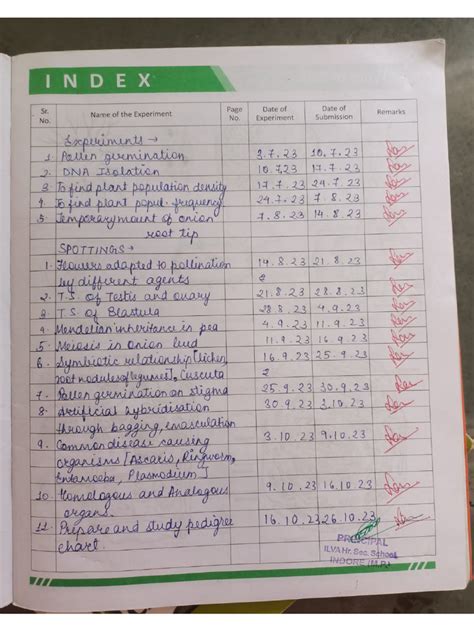 INDEX
Sr. No. Name of the Experiment Page No. Date of Experiment Date of Submission Remarks
Experiments →
1. Pollen germination 3.7.23 10.7.23
2. DNA Isolation 10.7.23 17.7.23
3 To find plant population density 17.7.23 24.7.23
4 To find plant popul. frequency 24.7.23 7.8.23
5 Temporary mount of onion 7.8.23 14.8.23
root tip
SPOTTINGS →
1. Flowers adapted to pollination 14.8.23 21.8.23
by different agents
2. T.S. of Testis and ovary 21.8.23 28.8.23
3. T.S. of Blastula 28.8.23 4.9.23
4. Mendelian inheritance in pea 4.9.23 11.9.23
5. Meiosis in onion bud 11.9.23 16.9.23
6. Symbiotic relationship [lichen, 16.9.23 25.9.23
root nodules of legumes], Cuscuta
7. Pollen germination on stigma 25.9.23 30.9.23
8. Artificial hybridisation 30.9.23 3.10.23
through bagging, emasculation
9. Common disease causing 3.10.23 9.10.23
organisms [Ascaris, Ringworm,
Entamoeba, Plasmodium]
10. Homologous and Analogous 9.10.23 16.10.23
organs.
11. Prepare and study pedigree 16.10.23 26.10.23
chart.
PRINCIPAL
ILVA Hr. Sec. School
INDORE (M.P.)